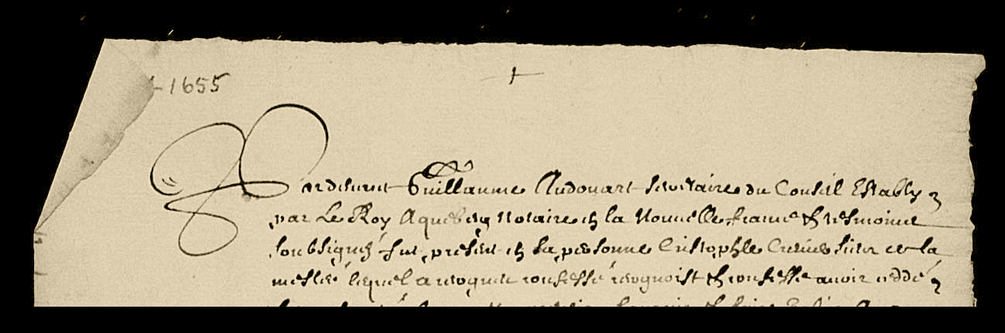 1655
Pardevant Guillaume Audouart Secretaire du Conseil Estably
par Le Roy a quebecq Notaire en la Nouvelle france & tesmoins
soubsignéz fut present en sa personne Cristophle Crevier sieur de la
meslée lequel a recogneu confessé recognoist & confesse avoir ceddé